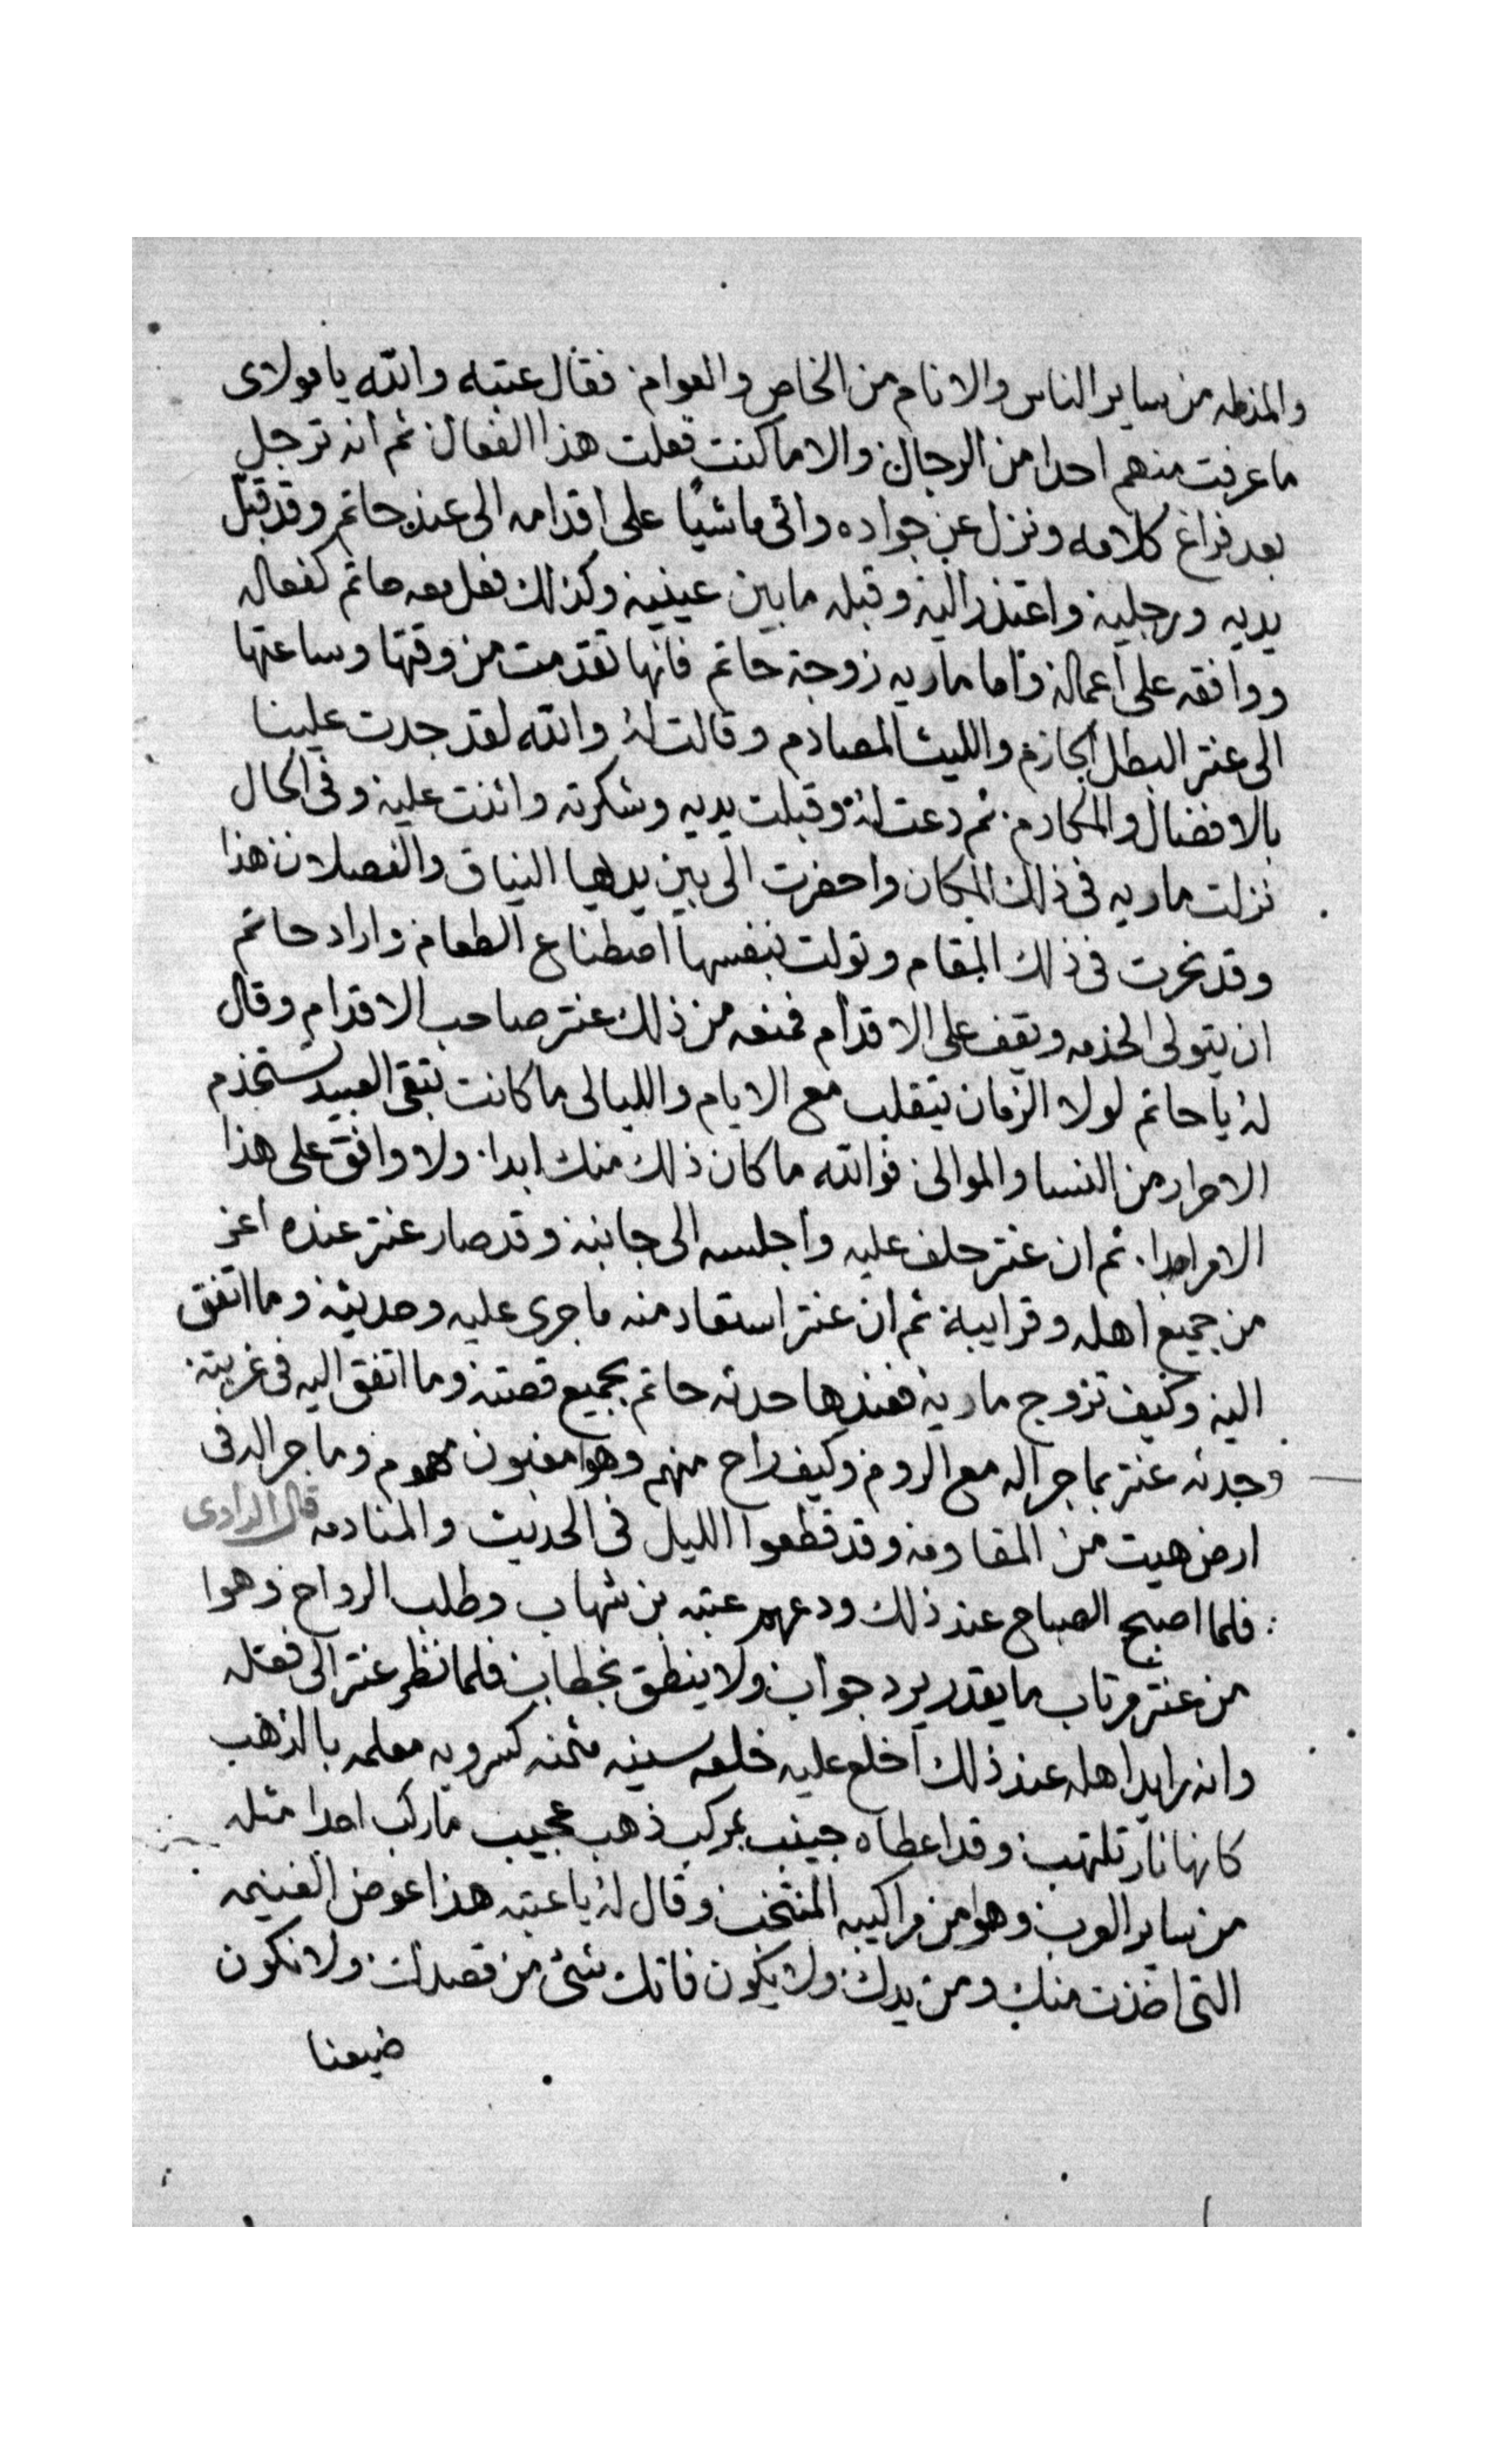 والمذله من ساير الناس والانام من الخاص والعوام فقال عتبه والله يا مولاى
ما عرفت منهم احدا من الرجال والا ما كنت فعلت هذا الفعال ثم انه ترجل
بعد فراغ كلامه ونزل عن جواده واتى ماشيًا على اقدامه الى عند حاتم وقد قبل
يديه ورجليه واعتذر اليه وقبله ما بين عينيه وكذلك فعل معه حاتم كفعاله
ووافقه على اعماله واما ماريه زوجة حاتم فانها تقدمت من وقتها وساعتها
الى عنتر البطل الحازم والليث المصادم وقالت له والله لقد جدت علينا
بالافضال والمكارم ثم دعت له وقبلت يديه وشكرته واثنت عليه وفى الحال
نزلت ماريه فى ذلك المكان واحضرت الى بين يديها النياق والفصلان هذا
وقد نحرت فى ذلك المقام وتولت بنفسها اصطناع الطعام واراد حاتم
ان يتولى الخدمه ويقف على الاقدام فمنعه من ذلك عنتر صاحب الاقدام وقال
له يا حاتم لولا الزمان يتقلب مع الايام والليالى ما كانت تبقى العبيد تستخدم
الاحرار من النسا والموالى فوالله ما كان ذلك منك ابدا ولا وافق على هذا
الامر احدا ثم ان عنتر حلف عليه واجلسه الى جانبه وقد صار عنتر عنده اعز
من جميع اهله وقرايبه ثم ان عنتر استعاد منه ما جرى عليه وحديثه وما اتفق
اليه وكيف تزوج ماريه فعندها حدثه حاتم بجميع قصته وما اتفق اليه فى غربته
وحدثه عنتر بما جرا له مع الروم وكيف راح منهم وهوا مغبون مهموم وما جرا له فى
ارض هيت من المقاومه وقد قطعوا الليل فى الحديث والمنادمه قال الراوى
فلما اصبح الصباح عند ذلك ودعهم عتبه بن شهاب وطلب الرواح وهوا
من عنتر مرتاب ما يقدر يرد جواب ولا ينطق بخطاب فلما نظر عنتر الى فعله
وانه راجا اهله عند ذلك اخلع عليه خلعه سنيه مثمنه كسرويه معلمه بالذهب
كانها نار تلتهب وقد اعطاه جنيب بمركب ذهب عجيب ما ركب احدا مثله
من ساير العرب وهوا من مراكيبه المنتخب وقال له يا عتبه هذا عوض الغنيمه
التى اخذت منك ومن يدك ولا يكون فاتك شئ من قصدك ولا نكون
ضيعنا